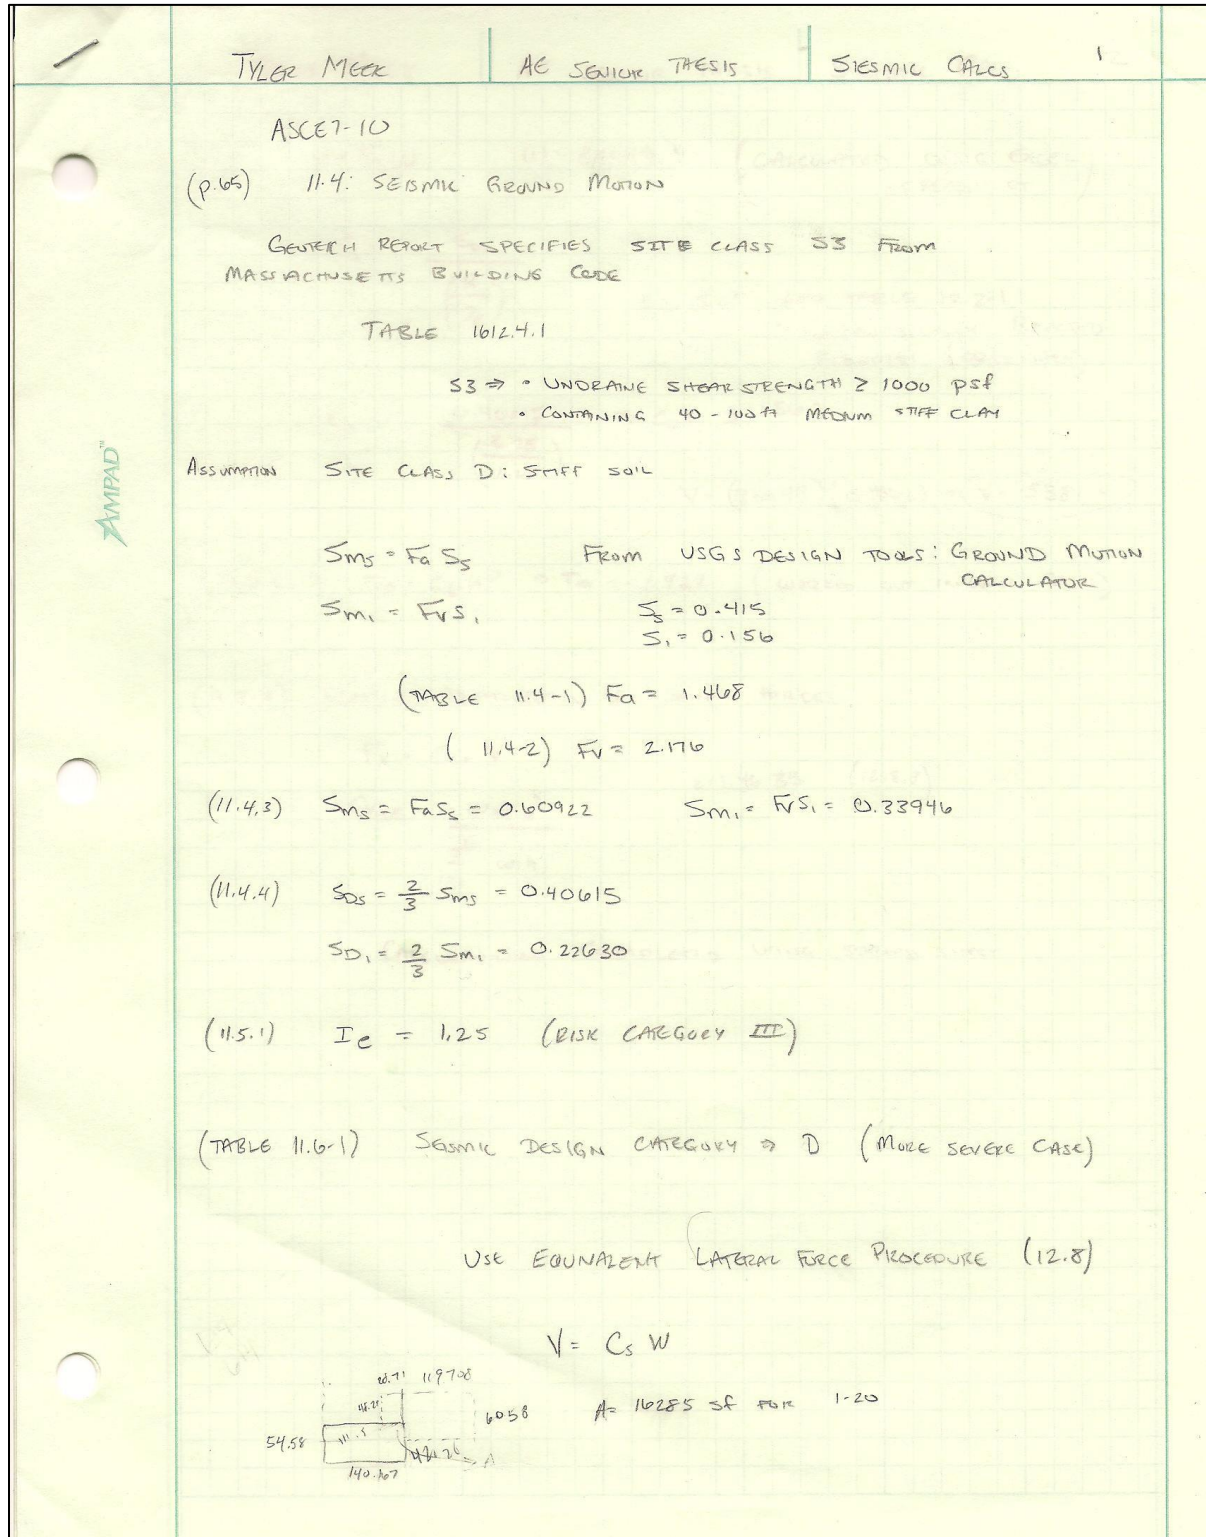 TYLER MEEK AE SENIOR THESIS SIESMIC CALCS 1
ASCE7-10
(p.65) 11.4: SEISMIC GROUND MOTION
GEOTECH REPORT SPECIFIES SITE CLASS S3 FROM
MASSACHUSETTS BUILDING CODE
TABLE 1612.4.1
S3 ⇒ • UNDRAINE SHEAR STRENGTH ≥ 1000 psf
• CONTAINING 40-100 ft MEDIUM STIFF CLAY
AMPAD™
ASSUMPTION SITE CLASS D: STIFF SOIL
Sms = Fa Ss FROM USGS DESIGN TOOLS: GROUND MOTION
CALCULATOR
Sm1 = FvS1 Ss = 0.415
S1 = 0.156
(TABLE 11.4-1) Fa = 1.468
(11.4-2) Fv = 2.176
(11.4.3) Sms = FaSs = 0.60922 Sm1 = FvS1 = 0.33946
(11.4.4) SDs = 2/3 Sms = 0.40615
SD1 = 2/3 Sm1 = 0.22630
(11.5.1) Ie = 1.25 (RISK CATEGORY III)
(TABLE 11.6-1) SEISMIC DESIGN CATEGORY ⇒ D (MORE SEVERE CASE)
USE EQUIVALENT LATERAL FORCE PROCEDURE (12.8)
V = Cs W
119.708
60.58 A= 16285 sf FOR 1-20
54.58
140.167